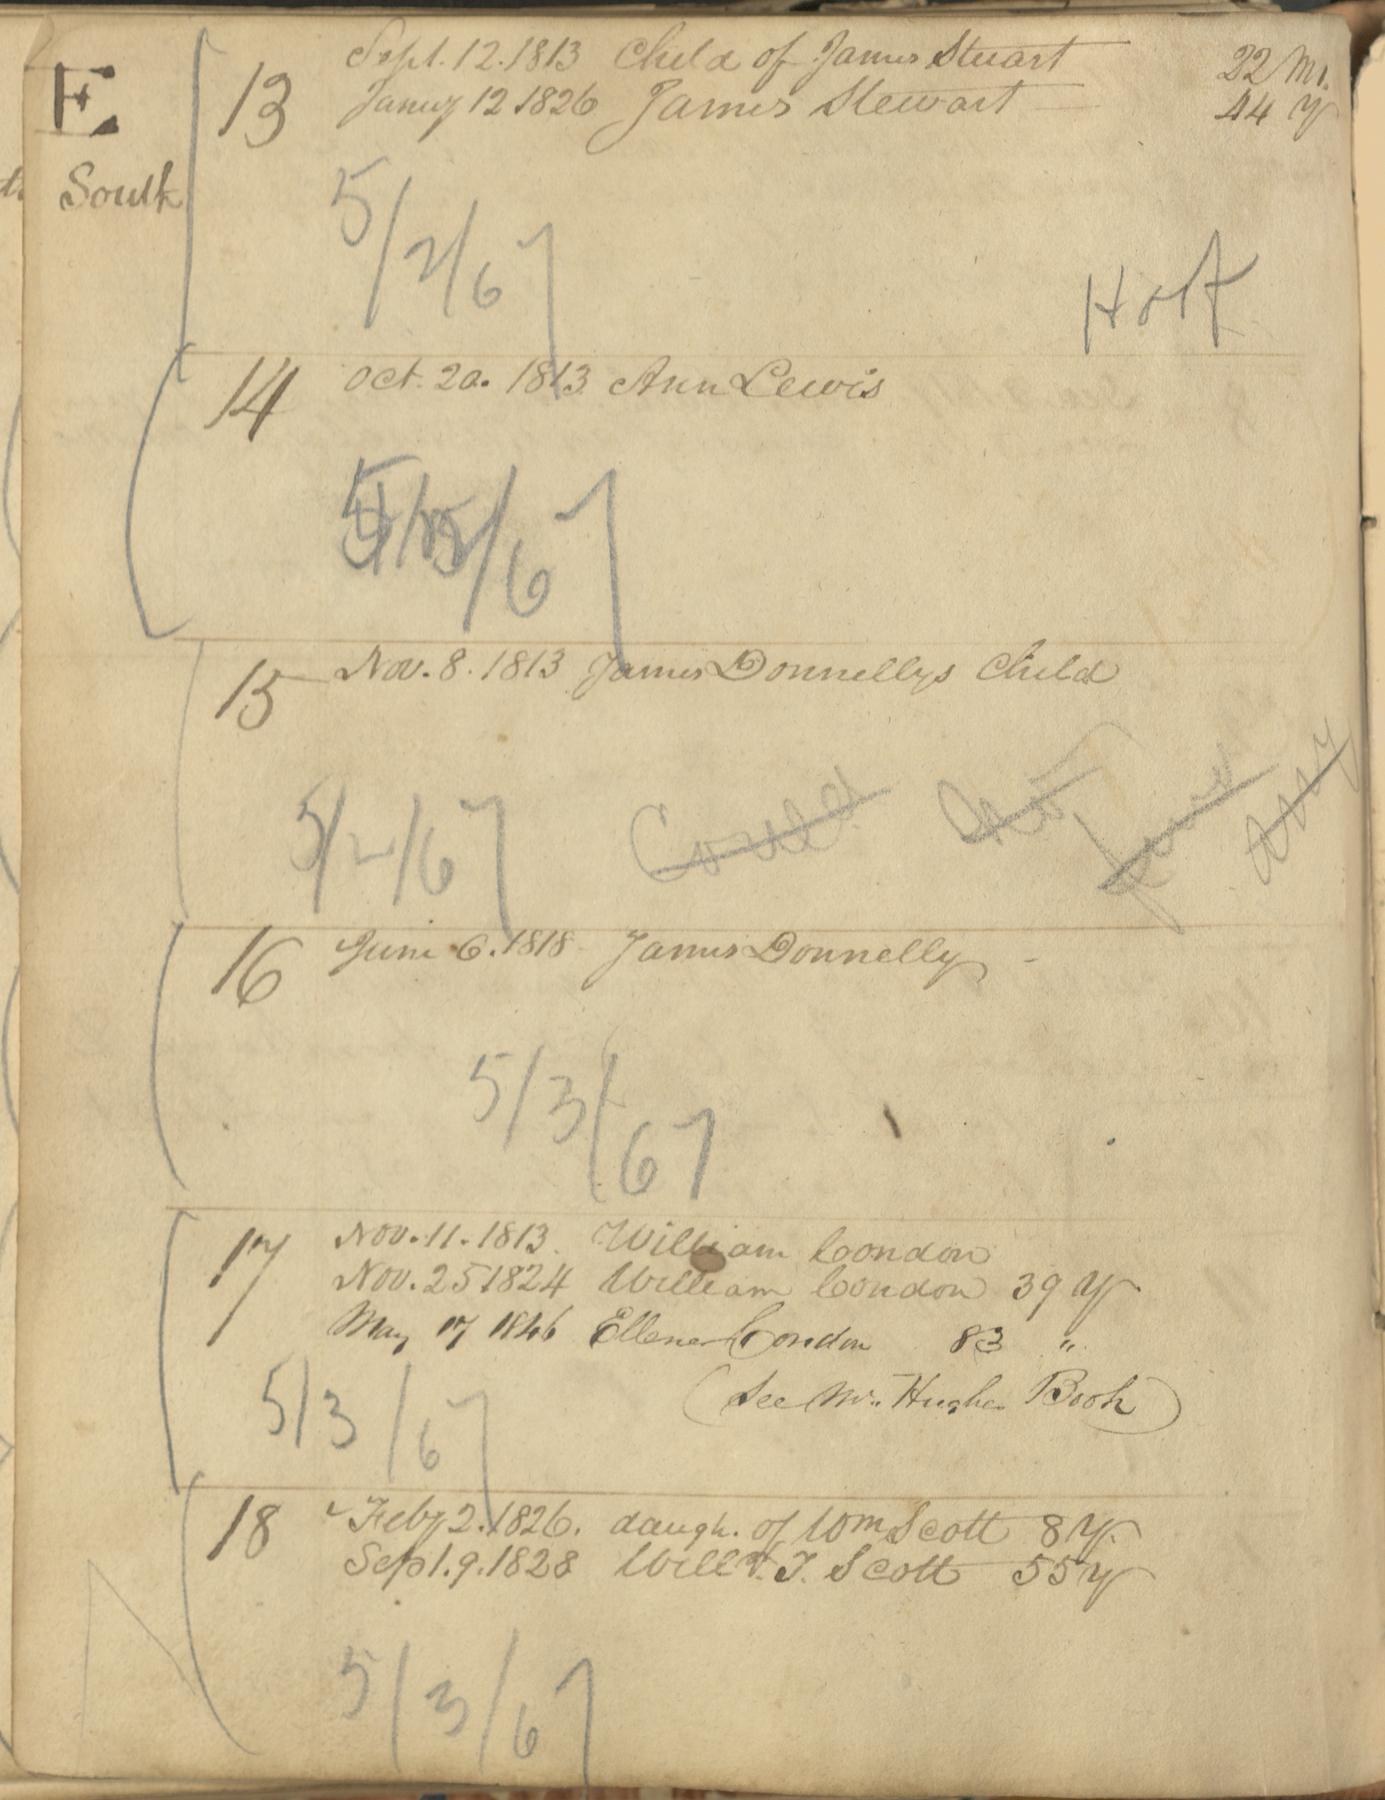 E.
South
13 Sept. 12. 1813 Child of James Stuart 22 Mo.
Januy 12 1826 James Stewart 44 Y
5/2/67
14 Oct. 20. 1813 Ann Lewis
/67
15 Nov. 8. 1813 James Donnellys Child
5/2/67 Could not
16 June 6. 1818 James Donnelly
5/3/67
17 Nov. 11. 1813. William Condon
Nov. 25 1824 William Condon 39 Y
May 17 1846 Ellenor Condon 83 "
(See Mr. Hughes Book)
5/3/67
18 Feby 2. 1826. daugh. of Wm Scott 8 Y.
Sept. 9. 1828 Willm. T. Scott 55 Y
5/3/67